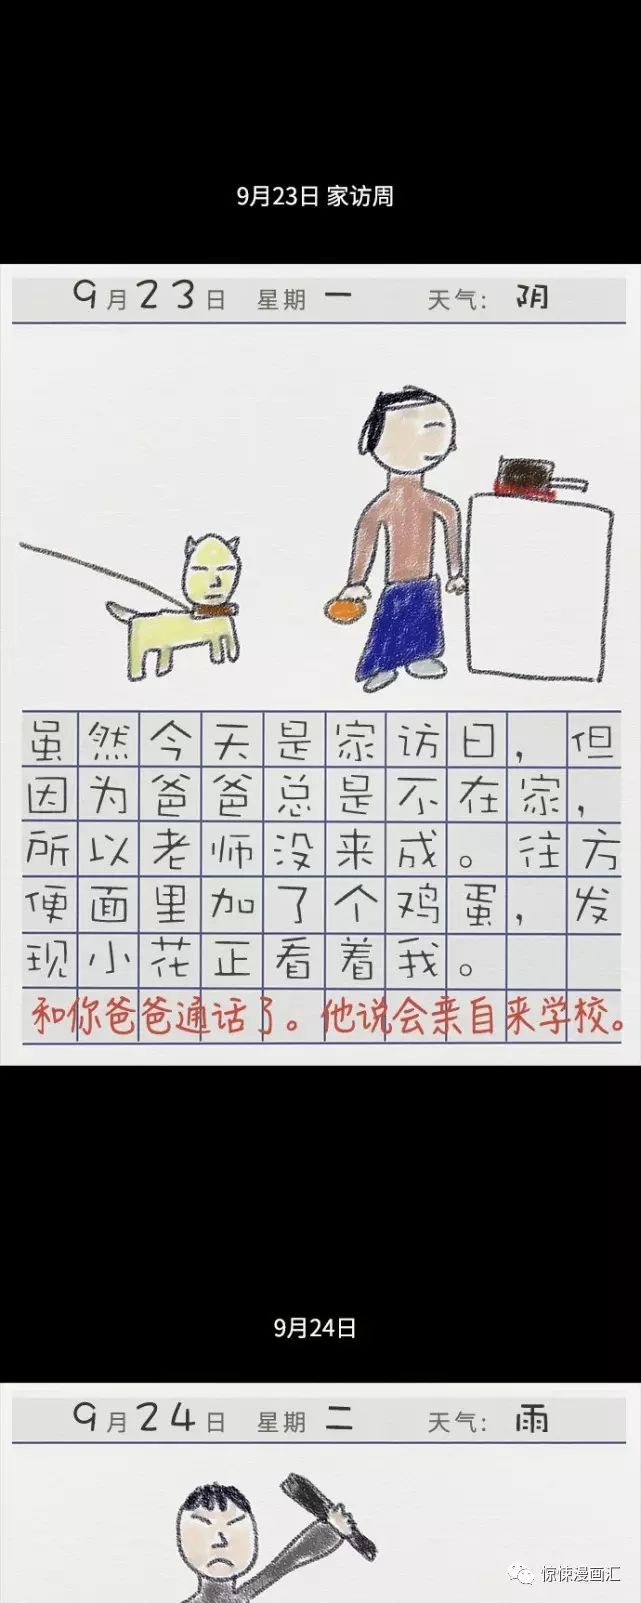 9月23日 家访周
9月23日 星期 一 天气: 阴
虽然今天是家访日,但
因为爸爸总是不在家,
所以老师没来成。往方
便面里加了个鸡蛋,发
现小花正看着我。
和你爸爸通话了。他说会亲自来学校。
9月24日
9月24日 星期 二 天气: 雨
惊悚漫画汇